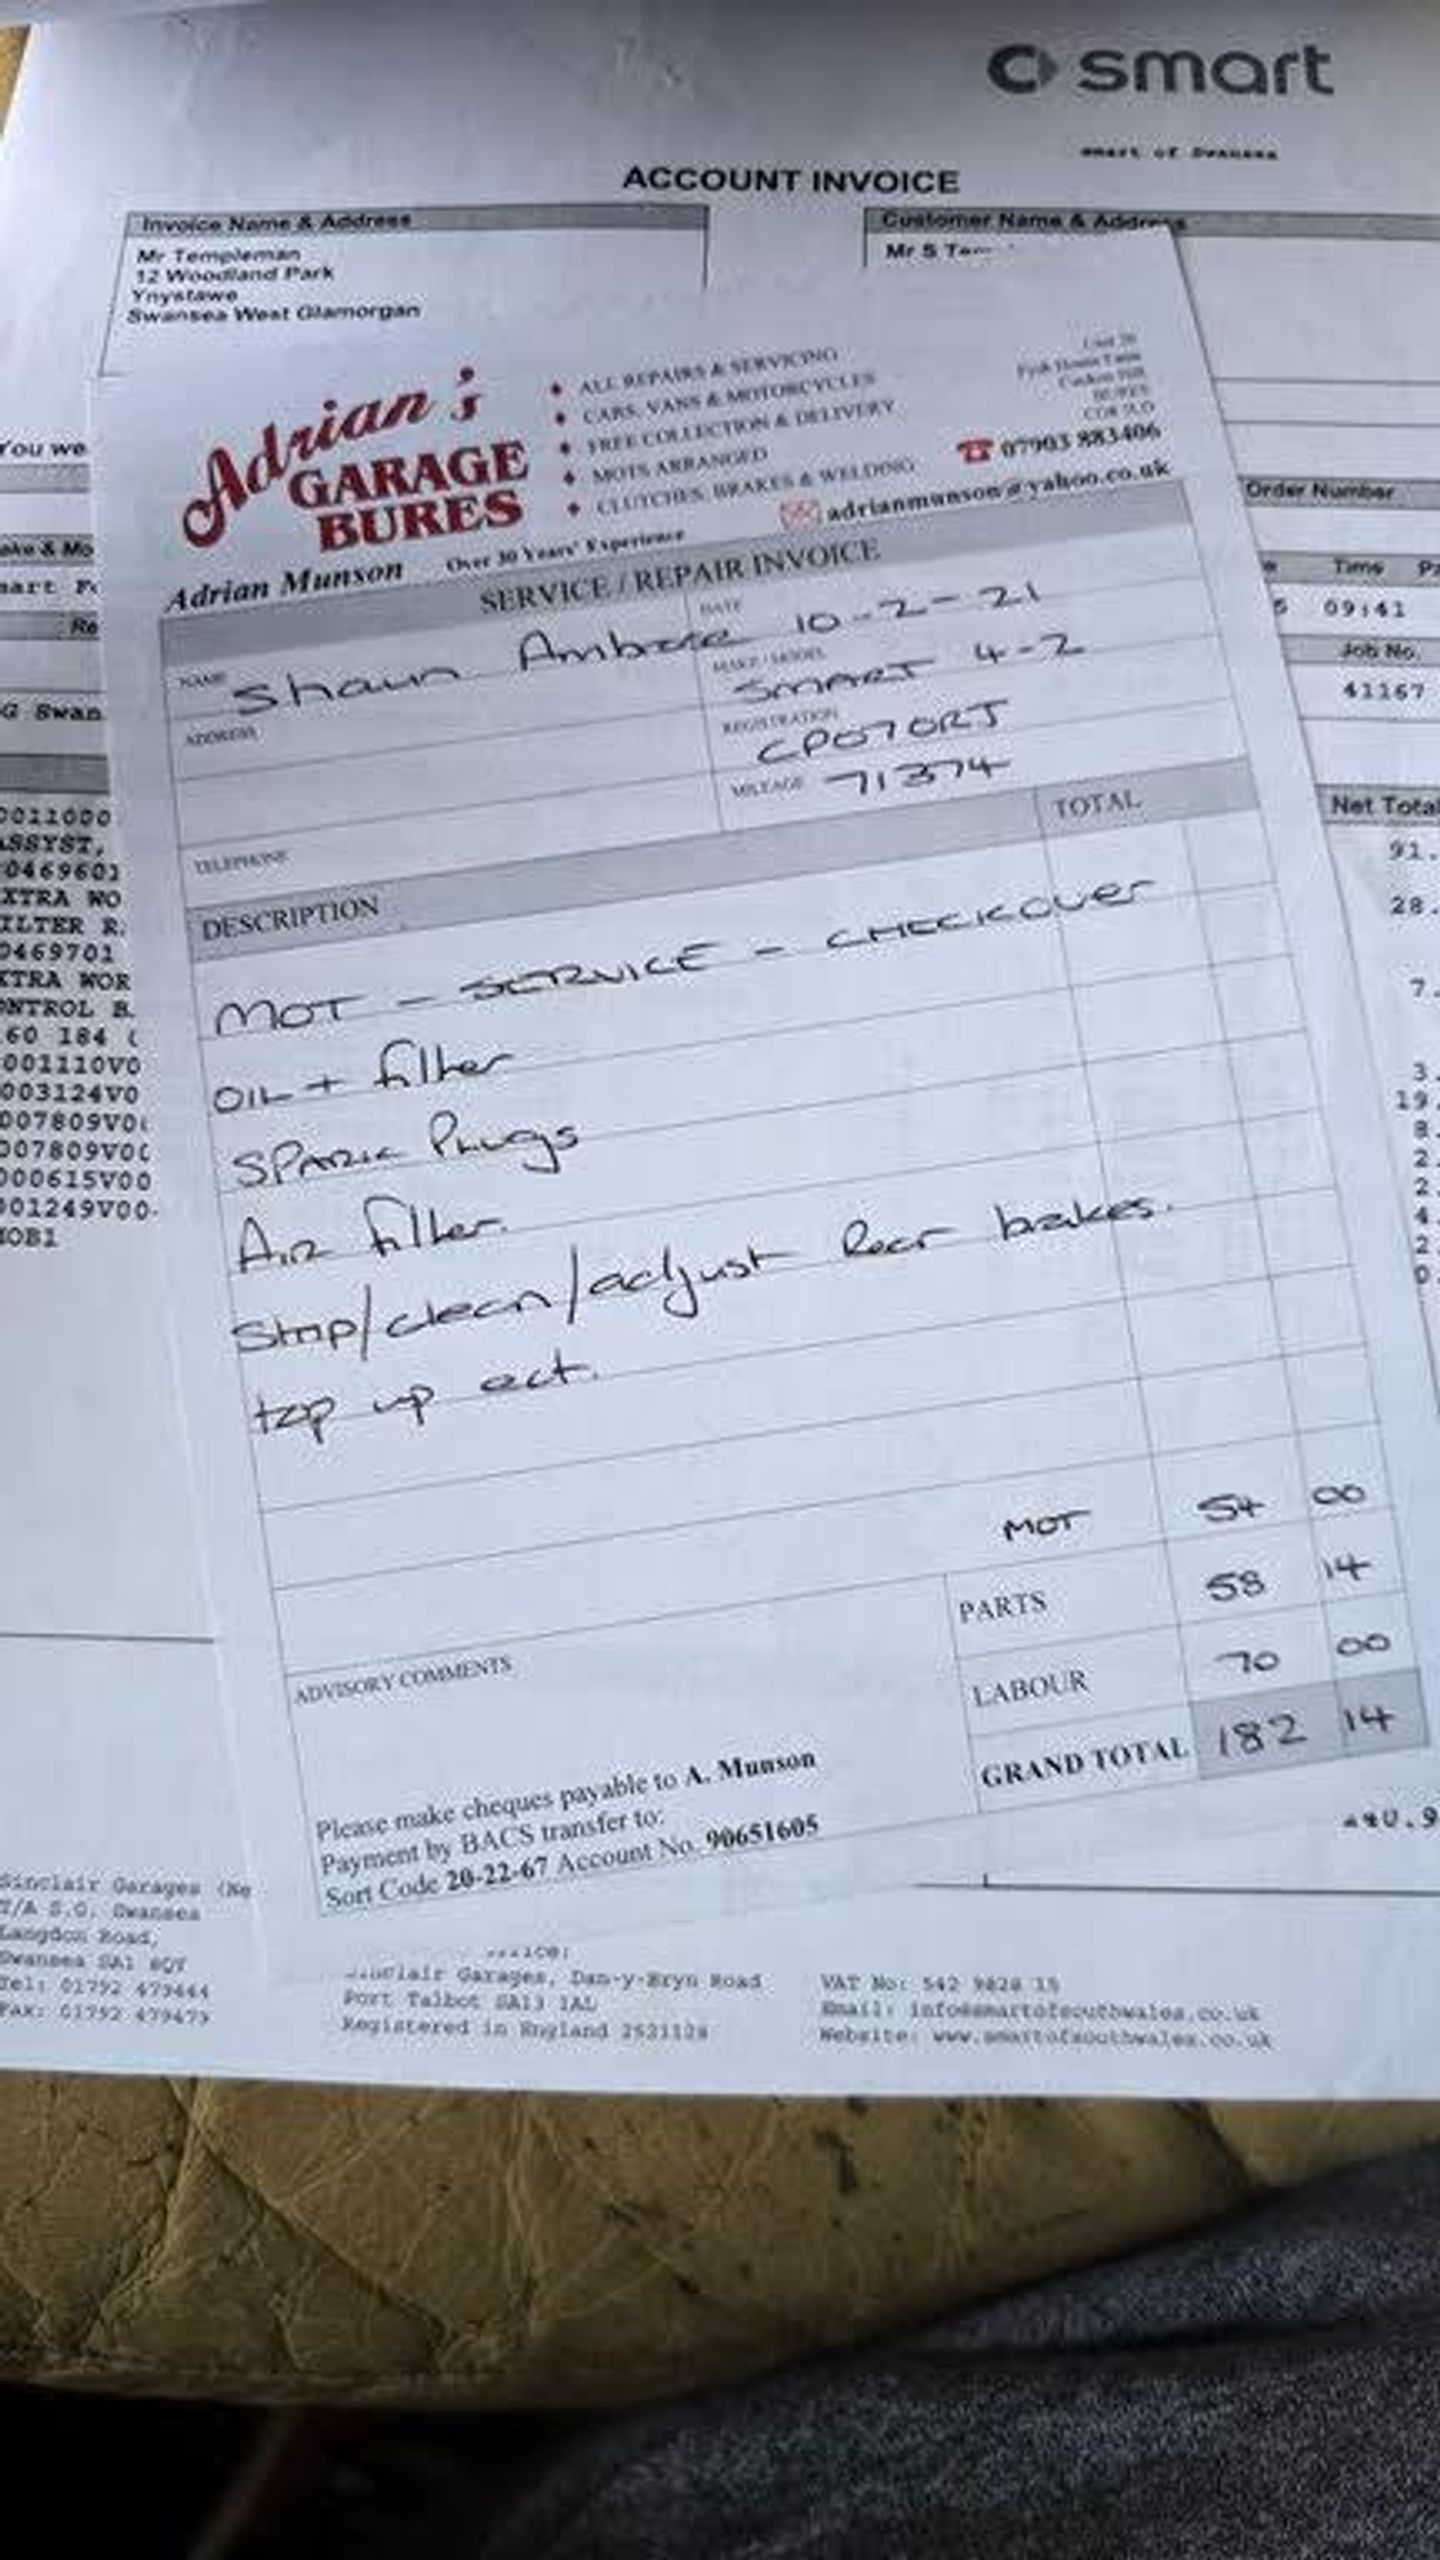 smart
smart of Swansea
ACCOUNT INVOICE
Invoice Name & Address
Mr Templeman
12 Woodland Park
Ynystawe
Swansea West Glamorgan
Customer Name & Address
Mr S
You we
Order Number
Time
09:41
Job No.
41167
Net Total
Adrian's
GARAGE
BURES
Adrian Munson
Over 30 Years' Experience
♦ ALL REPAIRS & SERVICING
♦ CARS, VANS & MOTORCYCLES
♦ FREE COLLECTION & DELIVERY
♦ MOTS ARRANGED
♦ CLUTCHES, BRAKES & WELDING
BURES
07903 883406
adrianmunson@yahoo.co.uk
SERVICE / REPAIR INVOICE
NAME Shaun
DATE 10-2-21
MAKE / MODEL
SMART 4-2
ADDRESS
REGISTRATION
CP07ORJ
MILEAGE 71374
TELEPHONE
DESCRIPTION TOTAL
MOT - SERVICE - CHECKOVER
OIL + filter
SPARK Plugs
Air filter.
Strip/clean/adjust Rear brakes.
top up ect.
MOT 54 00
PARTS 58 14
LABOUR 70 00
GRAND TOTAL 182 14
ADVISORY COMMENTS
Please make cheques payable to A. Munson
Payment by BACS transfer to:
Sort Code 20-22-67 Account No. 90651605
0011000
ASSYST,
0469601
XTRA WO
ILTER R
0469701
XTRA WOR
ONTROL B
60 184
001110V0
003124V0
007809V0
007809V00
000615V00
001249V00
MOB1
91.
28.
7.
3.
19.
8.
2.
2.
4.
2.
0.
Sinclair Garages (Ne
T/A S.G. Swansea
Langdon Road,
Swansea SA1 8QY
Tel: 01792 479444
Fax: 01792 479479
Sinclair Garages, Dan-y-Bryn Road
Port Talbot SA13 1AL
Registered in England 2521128
VAT No: 542 9828 15
Email: info@smartofsouthwales.co.uk
Website: www.smartofsouthwales.co.uk